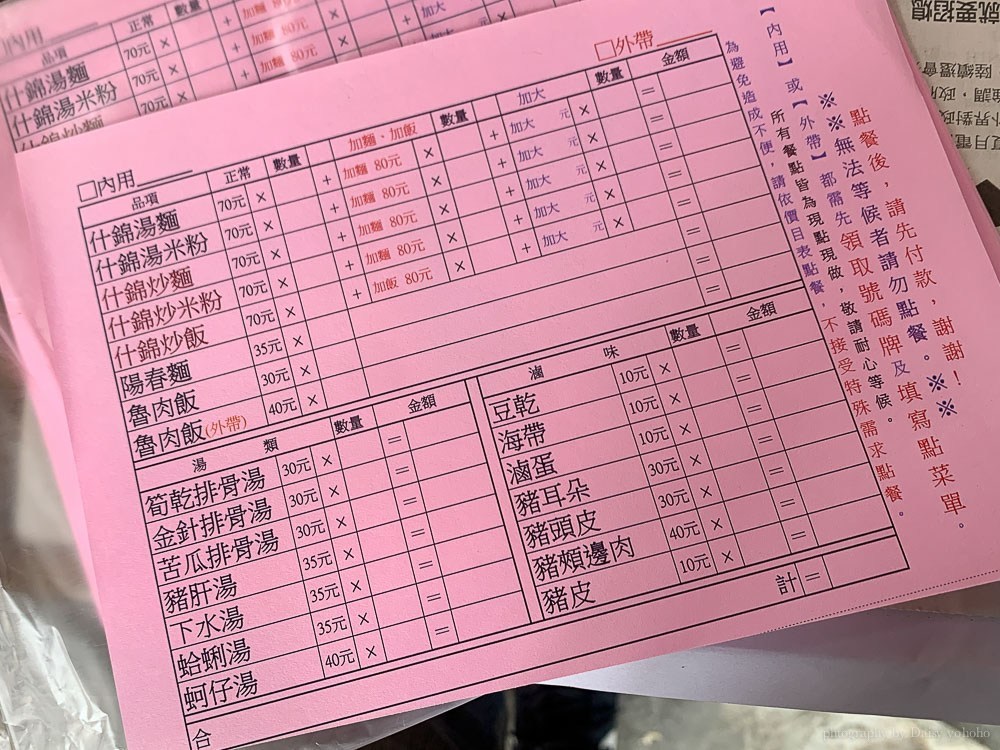 內用
品項 正常 數量
什錦湯麵 70元 × + 加麵 80元 × + 加大
什錦湯米粉 70元 × + 加麵 80元
什錦炒麵 70元 ×
□內用 □外帶
品項 正常 數量 加麵、加飯 數量 加大 數量 金額
什錦湯麵 70元 × + 加麵 80元 × + 加大 元 × =
什錦湯米粉 70元 × + 加麵 80元 × + 加大 元 × =
什錦炒麵 70元 × + 加麵 80元 × + 加大 元 × =
什錦炒米粉 70元 × + 加麵 80元 × + 加大 元 × =
什錦炒飯 70元 × + 加飯 80元 × + 加大 元 × =
陽春麵 35元 × =
魯肉飯 30元 × =
魯肉飯(外帶) 40元 × =
湯類 數量 金額
筍乾排骨湯 30元 × =
金針排骨湯 30元 × =
苦瓜排骨湯 30元 × =
豬肝湯 35元 × =
下水湯 35元 × =
蛤蜊湯 35元 × =
蚵仔湯 40元 × =
滷味 數量 金額
豆乾 10元 × =
海帶 10元 × =
滷蛋 10元 × =
豬耳朵 30元 × =
豬頭皮 30元 × =
豬頰邊肉 40元 × =
豬皮 10元 × =
合計 =
點餐後，請先付款，謝謝！
※※無法等候者請勿點餐。※※
【內用】或【外帶】都需先領取號碼牌及填寫點菜單。
所有餐點皆為現點現做，敬請耐心等候。
為避免造成不便，請依價目表點餐，不接受特殊需求點餐。
photography by Daisy yohoho